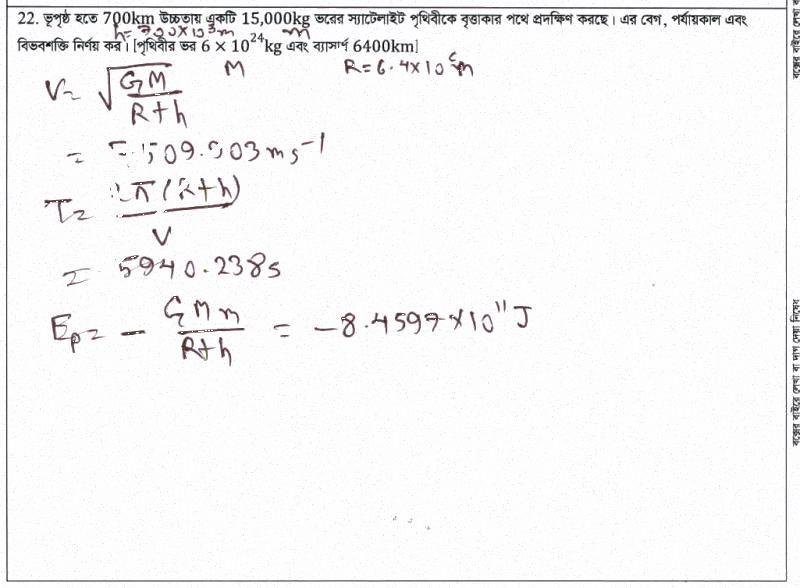 22. ভূপৃষ্ঠ হতে 700km উচ্চতায় একটি 15,000kg ভরের স্যাটেলাইট পৃথিবীকে বৃত্তাকার পথে প্রদক্ষিণ করছে। এর বেগ, পর্যায়কাল এবং
h=700×10³m m
বিভবশক্তি নির্ণয় কর। [পৃথিবীর ভর 6 × 10²⁴kg এবং ব্যাসার্ধ 6400km]
M R=6.4×10⁶m
V= √(GM/(R+h))
= 509.503ms⁻¹
T= 2π(R+h)/V
= 5940.238s
Ep= - GMm/(R+h) = -8.4597×10¹¹J
বক্সের বাইরে লেখা বা দাগ দেয়া নিষেধ